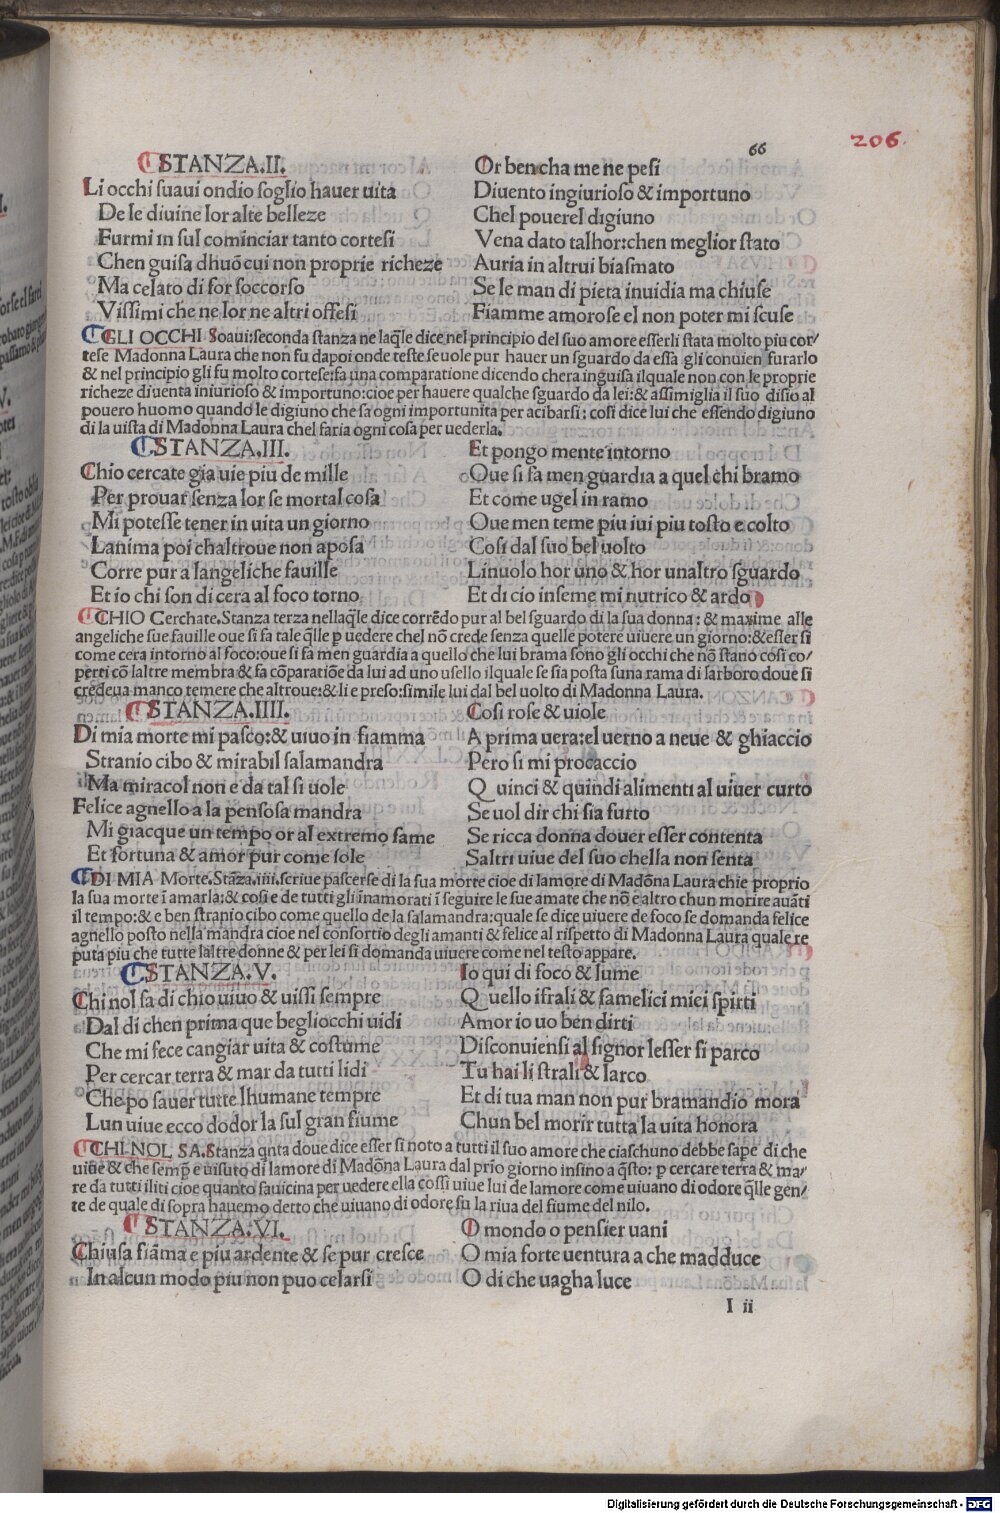 66
206.
STANZA.II.
Li occhi suaui ondio soglio hauer uita
De le diuine lor alte belleze
Furmi in sul cominciar tanto cortesi
Chen guisa dhuō cui non proprie richeze
Ma celato di for soccorso
Vissimi che ne lor ne altri offesi
Or bencha me ne pesi
Diuento ingiurioso & importuno
Chel pouerel digiuno
Vena dato talhor:chen meglior stato
Auria in altrui biasmato
Se le man di pieta inuidia ma chiuse
Fiamme amorose el non poter mi scuse
GLI OCCHI Soaui:seconda stanza ne laq̄le dice nel principio del suo amore esserli stata molto piu cor/
tese Madonna Laura che non fu dapoi onde teste se uole pur hauer un sguardo da essa gli conuien furarlo
& nel principio gli fu molto cortese:fa una comparatione dicendo chera inguisa ilquale non con le proprie
richeze diuenta iniurioso & importuno:cioe per hauere qualche sguardo da lei:& assimiglia il suo disio al
pouero huomo quando le digiuno che fa ogni importunita per acibarsi: cosi dice lui che essendo digiuno
di la uista di Madonna Laura chel faria ogni cosa per uederla.
STANZA.III.
Chio cercate gia uie piu de mille
Per prouar senza lor se mortal cosa
Mi potesse tener in uita un giorno
Lanima poi chaltroue non aposa
Corre pur a langeliche fauille
Et io chi son di cera al foco torno
Et pongo mente intorno
Oue si fa men guardia a quel chi bramo
Et come ugel in ramo
Oue men teme piu iui piu tosto e colto
Cosi dal suo bel uolto
Linuolo hor uno & hor unaltro sguardo
Et di cio inseme mi nutrico & ardo
CHIO Cerchate.Stanza terza nellaq̄le dice corrēdo pur al bel sguardo di la sua donna: & maxime alle
angeliche sue fauille oue si fa tale q̄lle p uedere chel nō crede senza quelle potere uiuere un giorno:&esser si
come cera intorno al foco:oue si fa men guardia a quello che lui brama sono gli occhi che nō stano cosi co/
perti cō laltre membra & fa cōparatiōe da lui ad uno usello ilquale se sia posta suna rama di larboro doue si
credeua manco temere che altroue:& li e preso:simile lui dal bel uolto di Madonna Laura.
STANZA.IIII.
Di mia morte mi pasco:& uiuo in fiamma
Stranio cibo & mirabil salamandra
Ma miracol non e da tal si uole
Felice agnello a la penosa mandra
Mi giacque un tempo or al extremo fame
Et fortuna & amor pur come sole
Cosi rose & uiole
A prima uera:el uerno a neue & ghiaccio
Pero si mi procaccio
Quinci & quindi alimenti al uiuer curto
Se uol dir chi sia furto
Se ricca donna douer esser contenta
Saltri uiue del suo chella non senta
DI MIA Morte.Stāza.iiii.scriue pascerse di la sua morte cioe di lamore di Madōna Laura chie proprio
la sua morte ī amarla:& cosi e de tutti gli inamorati ī seguire le sue amate che nō e altro chun morire auāti
il tempo:& e ben stranio cibo come quello de la salamandra:quale se dice uiuere de foco se domanda felice
agnello posto nella mandra cioe nel consortio degli amanti & felice al rispetto di Madonna Laura quale re
puta piu che tutte laltre donne & per lei si domanda uiuere come nel testo appare.
STANZA.V.
Chi nol sa di chio uiuo & uissi sempre
Dal di chen prima que begliocchi uidi
Che mi fece cangiar uita & costume
Per cercar terra & mar da tutti lidi
Che po sauer tutte lhumane tempre
Lun uiue ecco dodor la sul gran fiume
Io qui di foco & lume
Quello ifrali & famelici miei spirti
Amor io uo ben dirti
Disconuiensi al signor lesser si parco
Tu hai li strali & larco
Et di tua man non pur bramandio mora
Chun bel morir tutta la uita honora
CHI NOL SA.Stanza q̄nta doue dice esser si noto a tutti il suo amore che ciaschuno debbe sape di che
uiue & che semp̄ e uisuto di lamore di Madōna Laura dal prīo giorno insino a q̄sto: p cercare terra & ma/
re da tutti iliti cioe quanto sauicina per uedere ella cossi uiue lui de lamore come uiuano di odore q̄lle gen/
te de quale di sopra hauemo detto che uiuano di odore su la riua del fiume del nilo.
STANZA.VI.
Chiusa fiāma e piu ardente & se pur cresce
In alcun modo piu non puo celarsi
O mondo o pensier uani
O mia forte uentura a che madduce
O di che uagha luce
I ii
Digitalisierung gefördert durch die Deutsche Forschungsgemeinschaft - DFG